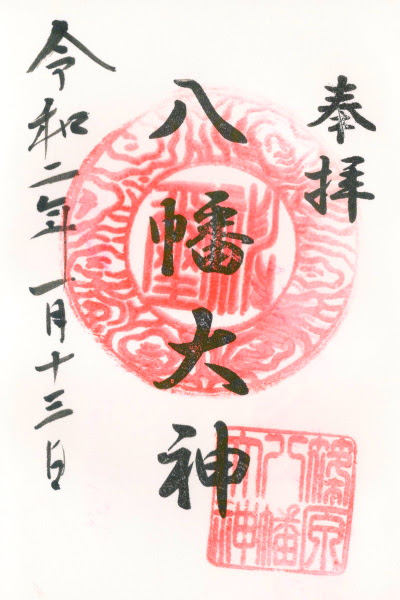 奉拝
八幡大神
令和二年一月十三日
原
八幡
大神